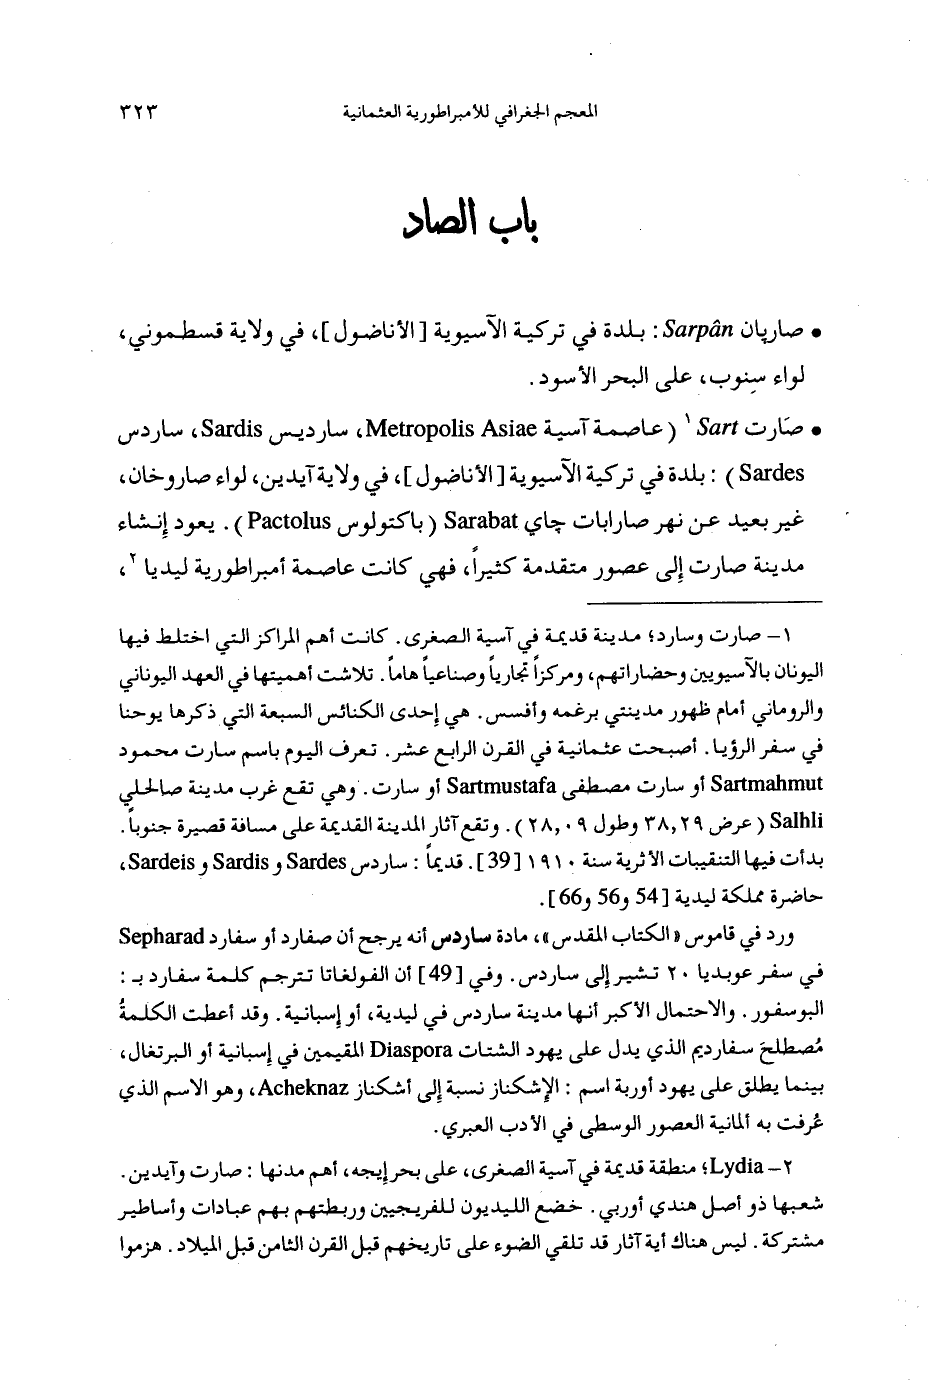 المعجم الجغرافي للأمبراطورية العثمانية ٣٢٣
باب الصاد
• صارپان Sarpân : بلدة في تركية الآسيوية [الأناضول]، في ولاية قسطموني،
لواء سِنوب، على البحر الأسود.
• صَارت Sart ١ (عاصمة آسية Metropolis Asiae، سارديس Sardis، ساردس
Sardes) : بلدة في تركية الآسيوية [الأناضول]، في ولاية آيدين، لواء صاروخان،
غير بعيد عن نهر صارابات چاي Sarabat (باكتولوس Pactolus). يعود إنشاء
مدينة صارت إلى عصور متقدمة كثيراً، فهي كانت عاصمة أمبراطورية ليديا ٢،
١– صارت وسارد؛ مدينة قديمة في آسية الصغرى. كانت أهم المراكز التي اختلط فيها
اليونان بالآسيويين وحضاراتهم، ومركزاً تجارياً وصناعياً هاماً. تلاشت أهميتها في العهد اليوناني
والروماني أمام ظهور مدينتي برغمه وأفسس. هي إحدى الكنائس السبعة التي ذكرها يوحنا
في سفر الرؤيا. أصبحت عثمانية في القرن الرابع عشر. تعرف اليوم باسم سارت محمود
Sartmahmut أو سارت مصطفى Sartmustafa أو سارت. وهي تقع غرب مدينة صالحلي
Salhli (عرض ٣٨,٢٩ وطول ٢٨,٠٩). وتقع آثار المدينة القديمة على مسافة قصيرة جنوباً.
بدأت فيها التنقيبات الأثرية سنة ١٩١٠ [39]. قديماً : ساردس Sardes و Sardis و Sardeis،
حاضرة مملكة ليدية [54 و56 و66].
ورد في قاموس «الكتاب المقدس»، مادة ساردس أنه يرجح أن صفارد أو سفارد Sepharad
في سفر عوبديا ٢٠ تشير إلى ساردس. وفي [49] أن الفولغاتا تترجم كلمة سفارد بـ :
البوسفور. والاحتمال الأكبر أنها مدينة ساردس في ليدية، أو إسبانية. وقد أعطت الكلمةُ
مُصطلحَ سفارديم الذي يدل على يهود الشتات Diaspora المقيمين في إسبانية أو البرتغال،
بينما يطلق على يهود أوربة اسم : الإشكناز نسبة إلى أشكناز Acheknaz، وهو الاسم الذي
عُرفت به ألمانية العصور الوسطى في الأدب العبري.
٢– Lydia؛ منطقة قديمة في آسية الصغرى، على بحر إيجه، أهم مدنها : صارت وآيدين.
شعبها ذو أصل هندي أوربي. خضع الليديون للفريجيين وربطتهم بهم عبادات وأساطير
مشتركة. ليس هناك أية آثار قد تلقي الضوء على تاريخهم قبل القرن الثامن قبل الميلاد. هزموا